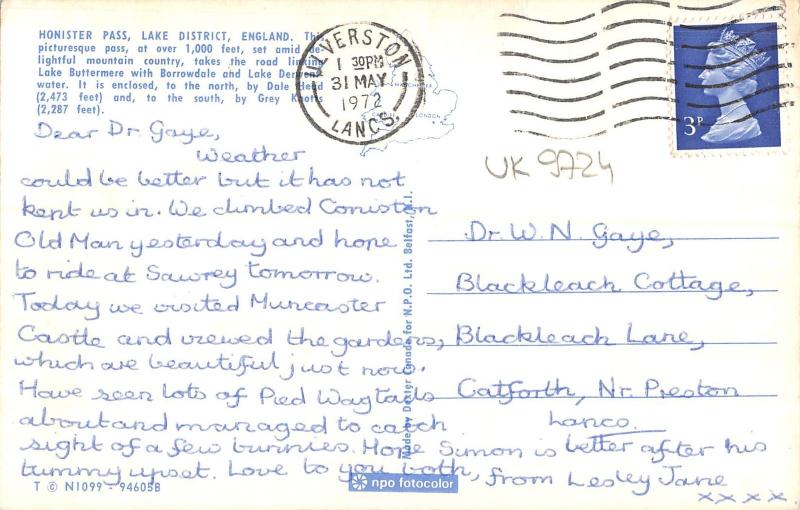 HONISTER PASS, LAKE DISTRICT, ENGLAND. This
picturesque pass, at over 1,000 feet, set amid de-
lightful mountain country, takes the road linking
Lake Buttermere with Borrowdale and Lake Derwent-
water. It is enclosed, to the north, by Dale Head
(2,473 feet) and, to the south, by Grey Knotts
(2,287 feet).
ULVERSTON
1 30PM
31 MAY
1972
LANCS.
LONDON
3P
UK 9724
Dear Dr. Gaye,
Weather
could be better but it has not
kept us in. We climbed Coniston
Old Man yesterday and hope
to ride at Sawrey tomorrow.
Today we visited Muncaster
Castle and viewed the gardens,
which are beautiful just now.
Have seen lots of Pied Wagtails
about and managed to catch
sight of a few bunnies. Hope Simon is better after his
tummy upset. Love to you both, from Lesley Jane
xxxx
Dr. W. N. Gaye,
Blackleach Cottage,
Blackleach Lane,
Catforth, Nr. Preston
Lancs.
Made by Dexter Canada for N.P.O. Ltd. Belfast, N.I.
T © N1099 - 94605B
npo fotocolor